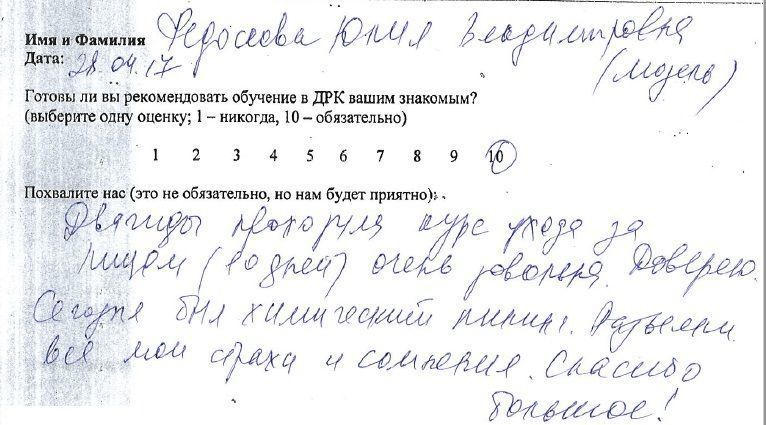 Имя и Фамилия Федосова Юлия Владимировна
Дата: 28.04.17 (модель)
Готовы ли вы рекомендовать обучение в ДРК вашим знакомым?
(выберите одну оценку; 1 – никогда, 10 – обязательно)
1 2 3 4 5 6 7 8 9 10
Похвалите нас (это не обязательно, но нам будет приятно):
Дважды проходила курс ухода за
лицом (10 дней) очень довольна. Доверяю.
Сегодня был химический пилинг. Развеяли
все мои страхи и сомнения. Спасибо
большое!